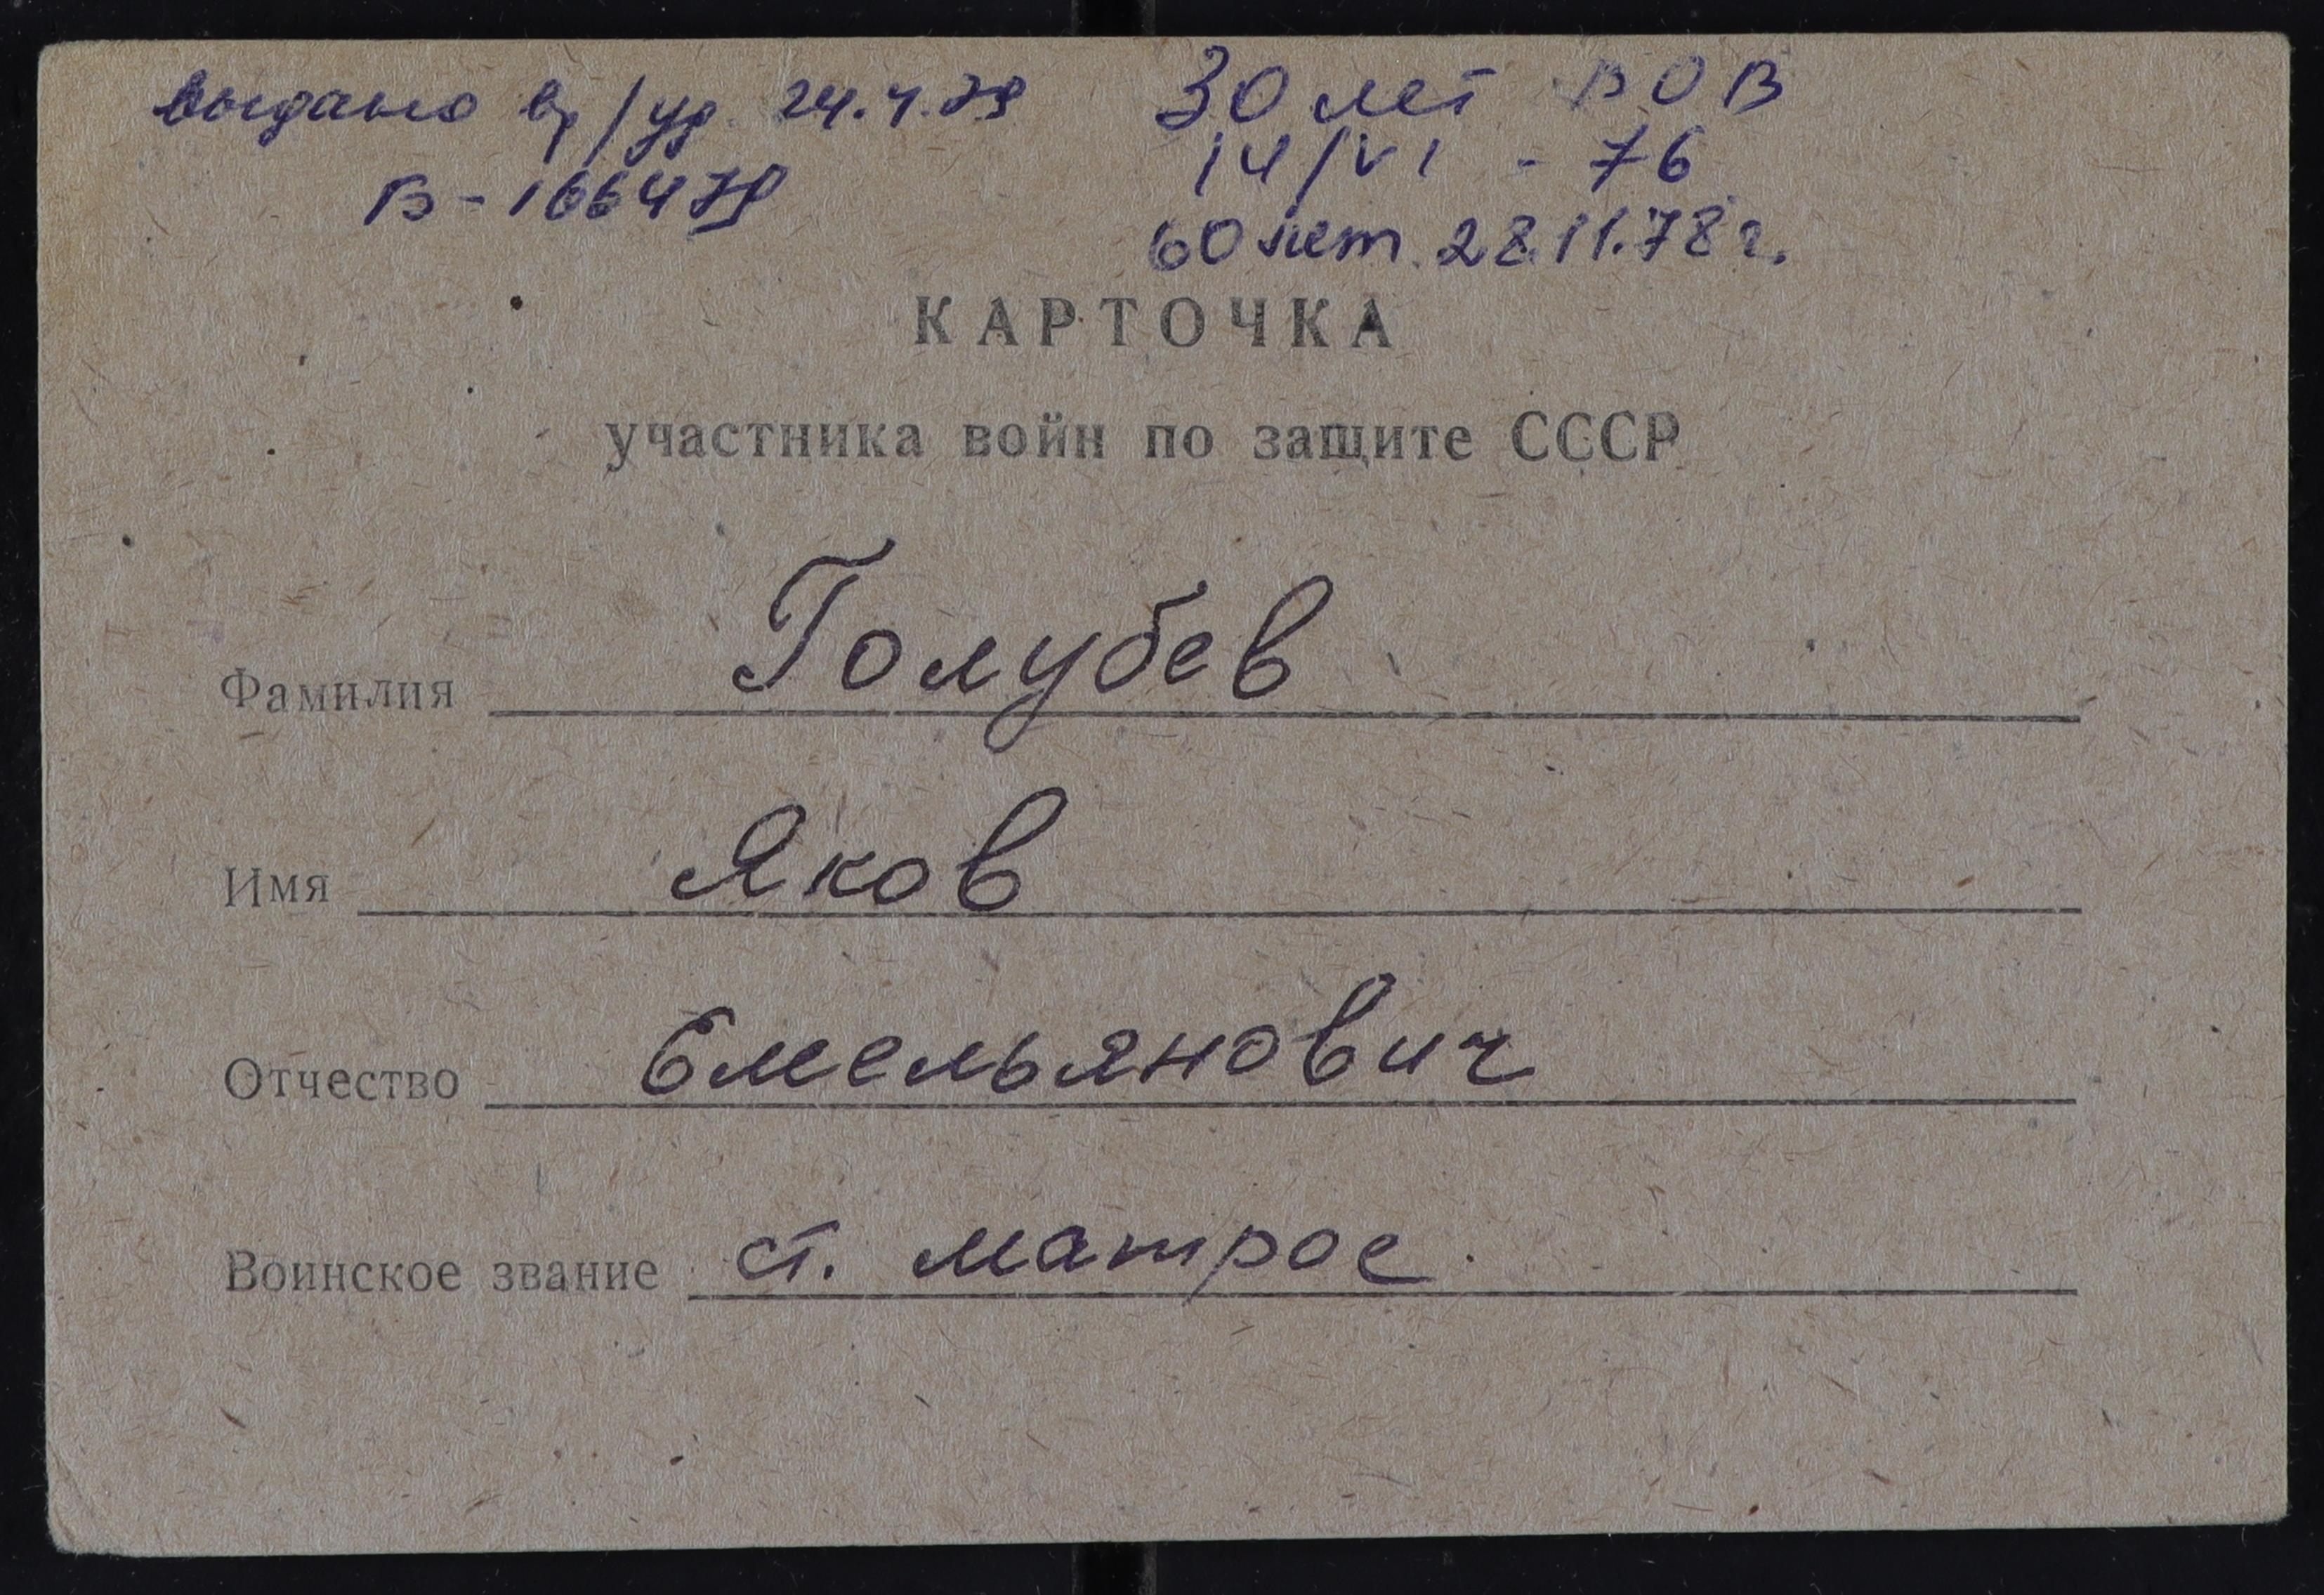 выдано вр/уд. 24.4.79
Б-166479
30 лет ВОВ
14/VI - 76
60 лет 28.11.78 г.
КАРТОЧКА
участника войн по защите СССР
Фамилия Голубев
Имя Яков
Отчество Емельянович
Воинское звание ст. матрос